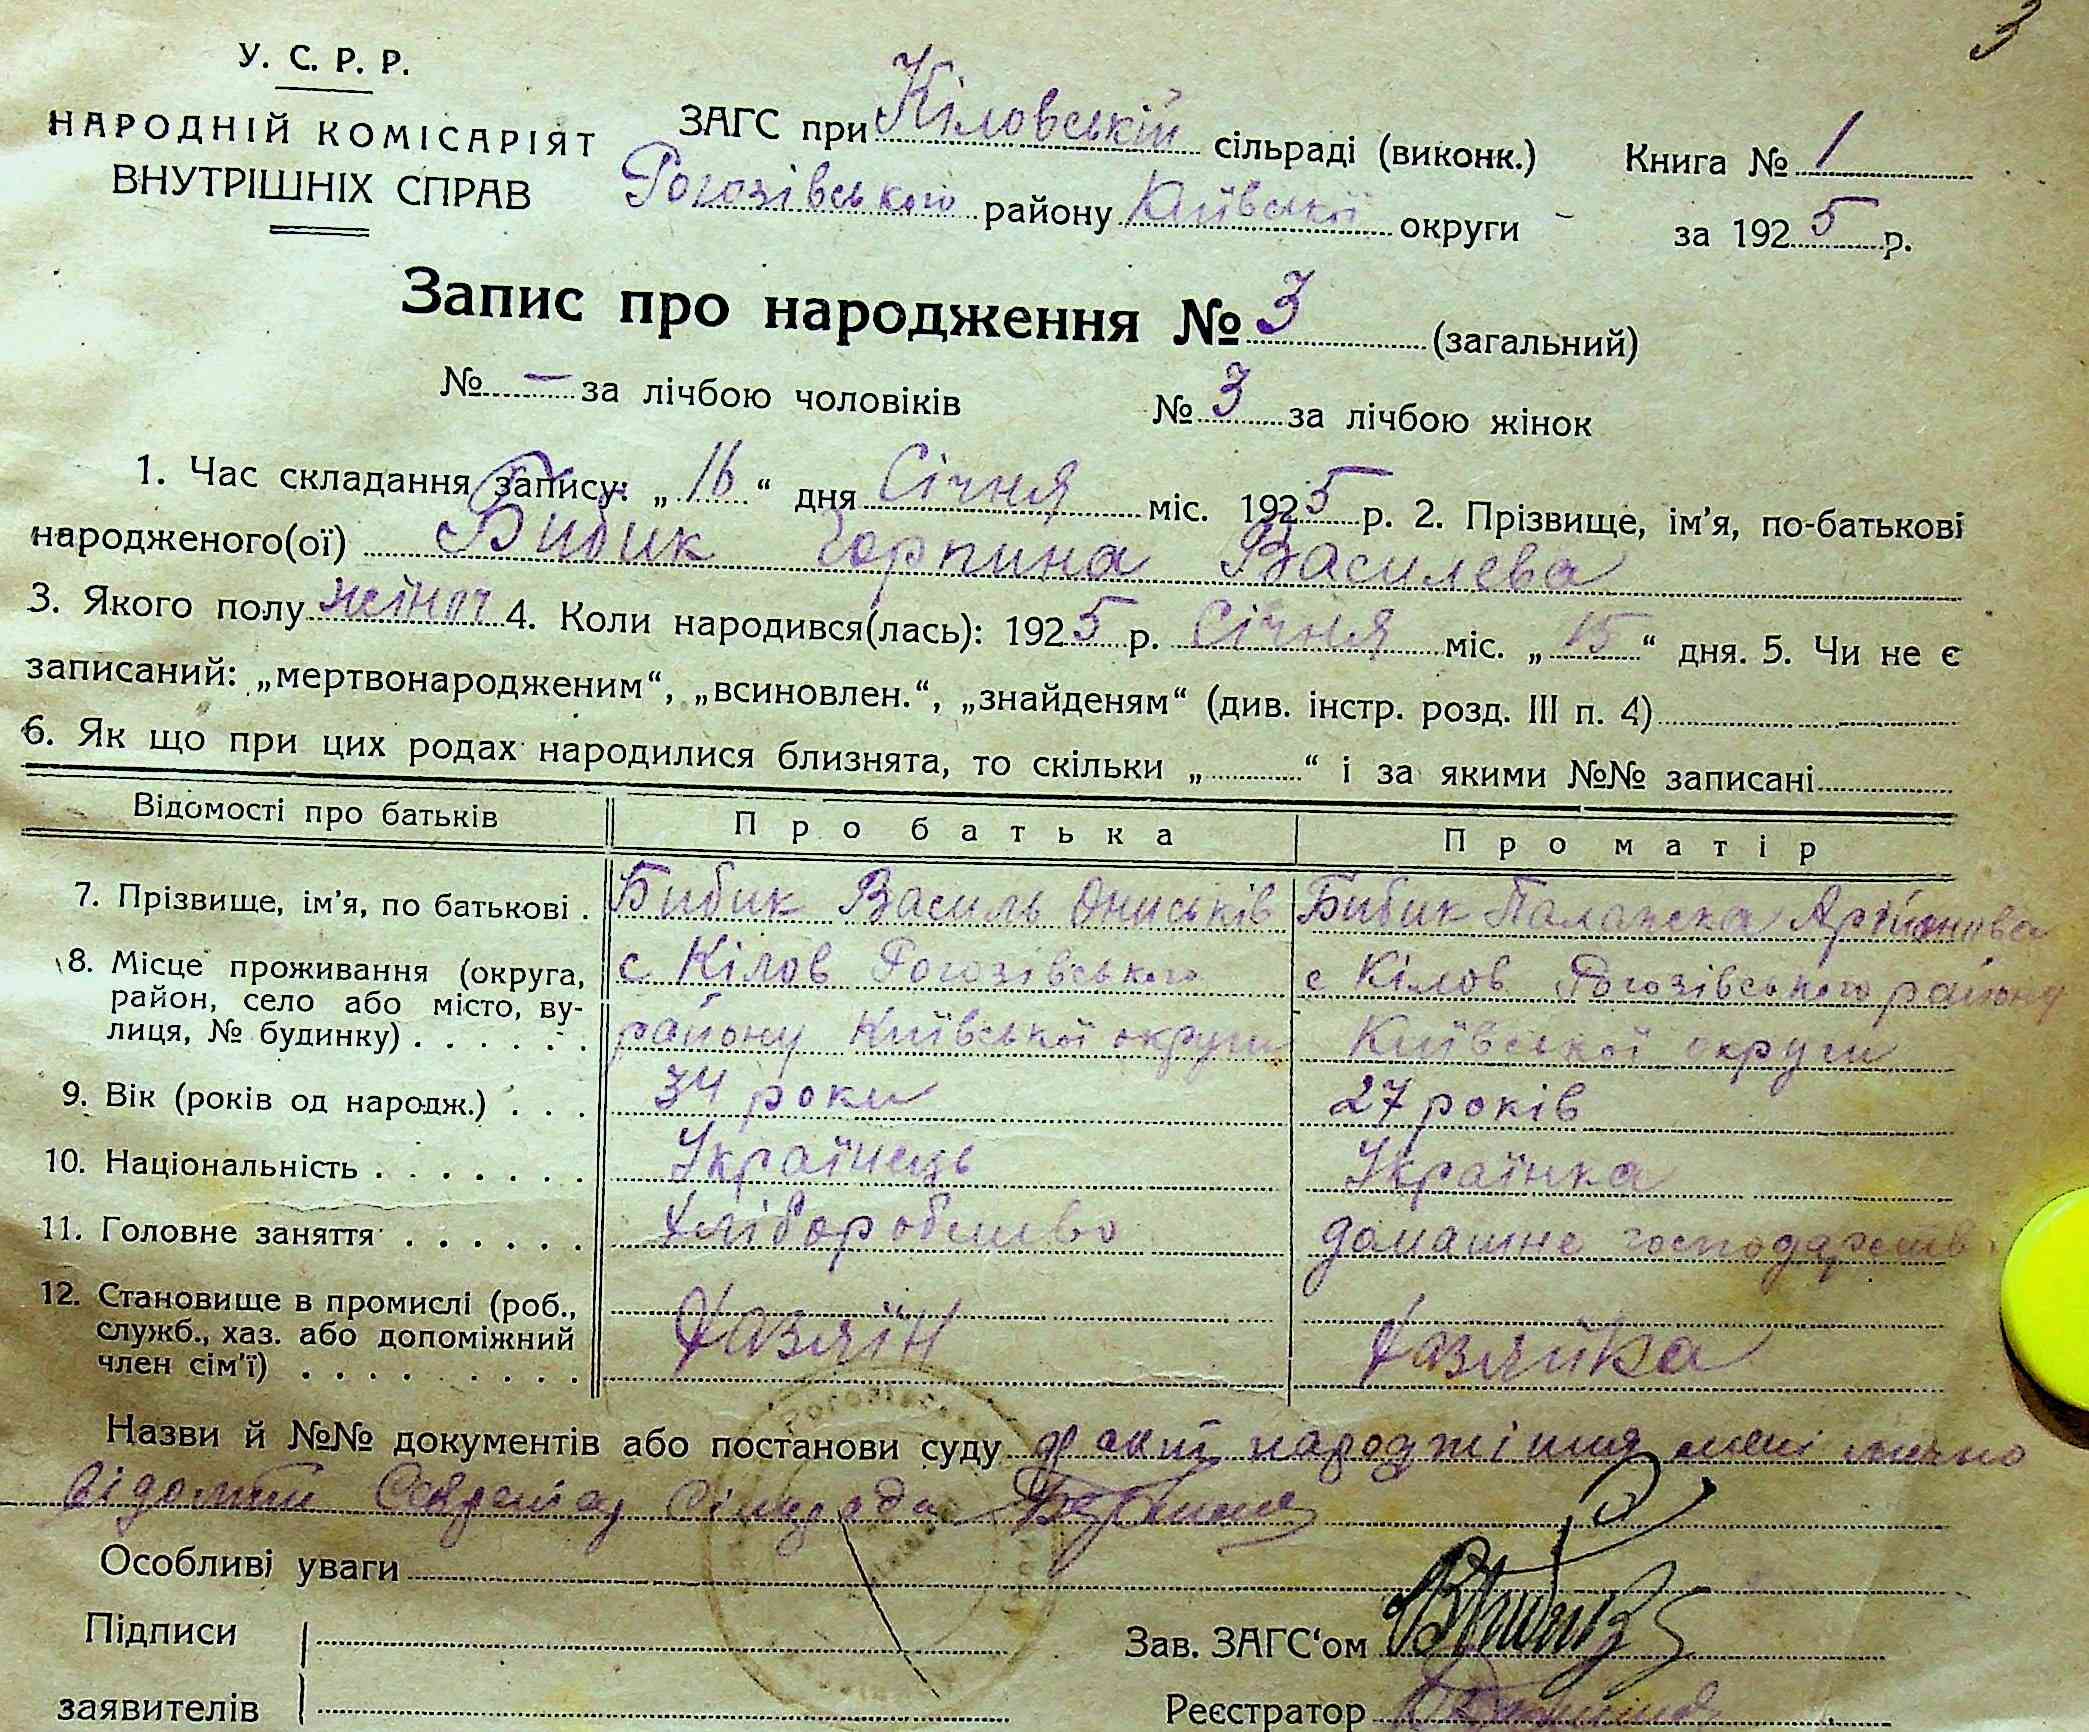 3
У. С. Р. Р.
НАРОДНІЙ КОМІСАРІЯТ
ВНУТРІШНІХ СПРАВ
ЗАГС при Кіловській сільраді (виконк.)
Рогозівського району Київської округи
Книга № 1
за 1925 р.
Запис про народження № 3 (загальний)
№ — за лічбою чоловіків № 3 за лічбою жінок
1. Час складання запису: „16“ дня Січня міс. 1925 р. 2. Прізвище, ім'я, по-батькові
народженого(ої) Бибик Горпина Василева
3. Якого полу жіноч 4. Коли народився(лась): 1925 р. Січня міс. „15“ дня. 5. Чи не є
записаний: „мертвонародженим“, „всиновлен.“, „знайденям“ (див. інстр. розд. III п. 4)
6. Як що при цих родах народилися близнята, то скільки „ “ і за якими №№ записані
Відомості про батьків Про батька Про матір
7. Прізвище, ім'я, по батькові . Бибик Василь Ониськів Бибик Палажка
8. Місце проживання (округа, район, село або місто, ву-
лиця, № будинку) . . . . . . с Кілов Рогозівського району Київської округи с Кілов Рогозівського району Київської округи
9. Вік (років од народж.) . . . 34 роки 27 років
10. Національність . . . . . . . Українець Українка
11. Головне заняття . . . . . . Хліборобство домашне господарств
12. Становище в промислі (роб.,
служб., хаз. або допоміжний
член сім'ї) . . . . . . . . . Хазяїн Хазяйка
Назви й №№ документів або постанови суду народжіння мені лично
відомий Секретар Сільради
Особливі уваги
Підписи
заявителів
Зав. ЗАГС'ом
Реєстратор